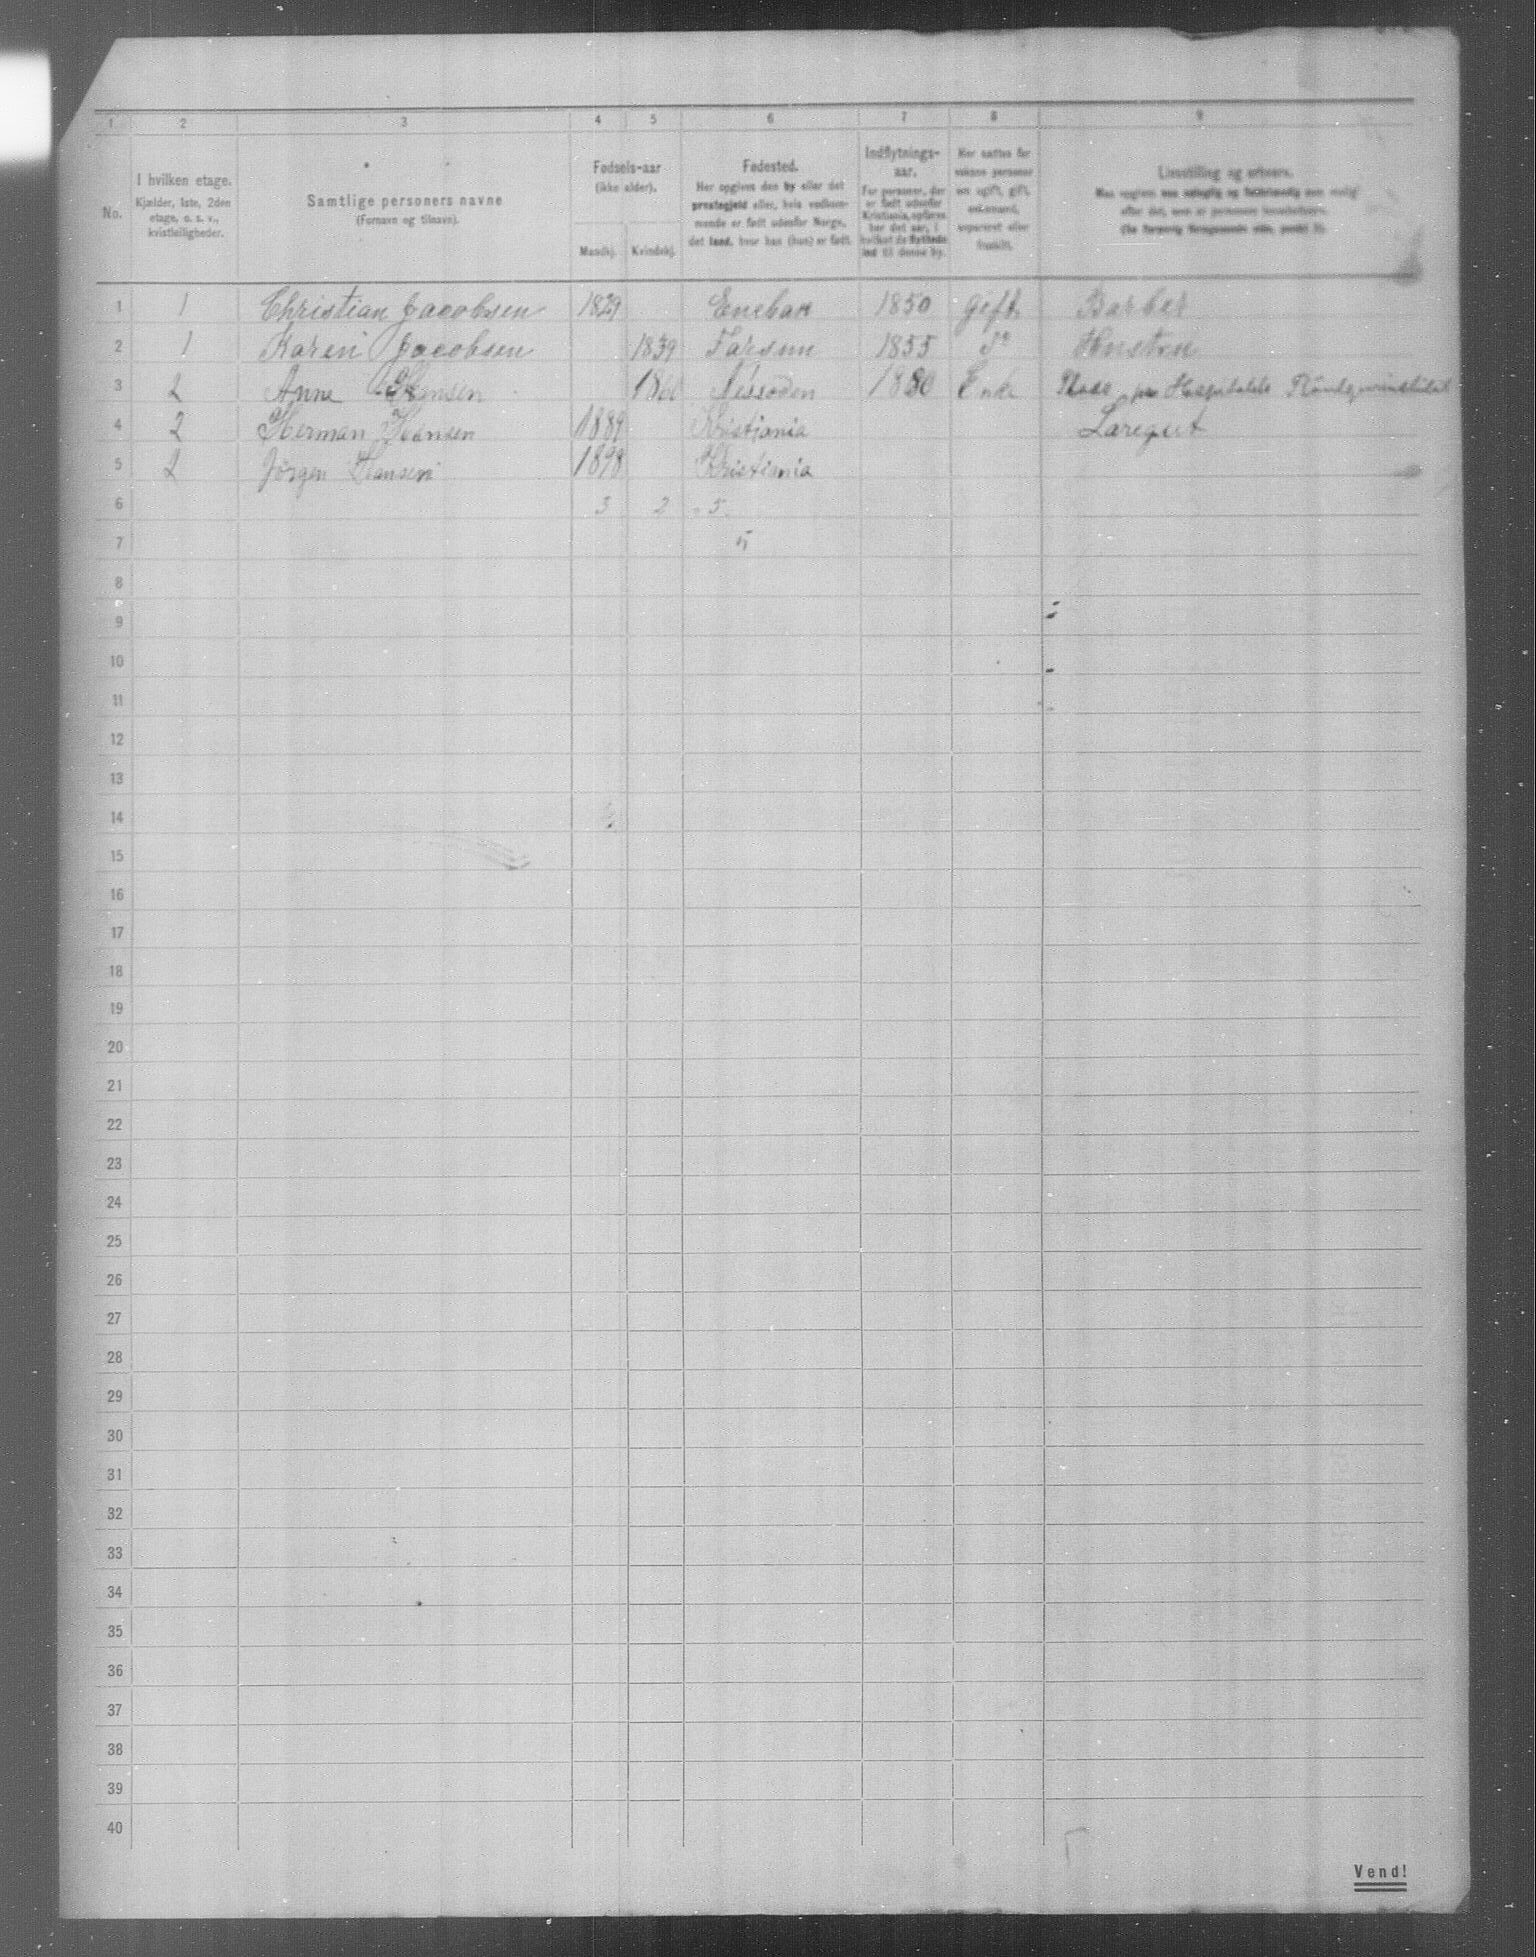 1 2 3 4 5 6 7 8 9
No.
I hvilken etage.
Kjælder, 1ste, 2den
etage, o. s. v.,
kvistleiligheder.
Samtlige personers navne
(Fornavn og tilnavn).
Fødsels-aar
(ikke alder).
Mandkj. Kvindekj.
Fødested.
Her opgives den by eller det
prestegjeld eller, hvis vedkom-
mende er født udenfor Norge,
det land, hvor han (hun) er født.
Indflytnings-
aar.
For personer, der
er født udenfor
Kristiania, opføres
her det aar, i
hvilket de flyttede
ind til denne by.
Her sættes for
voksne personer
om ugift, gift,
enkemand,
separeret eller
fraskilt.
Livsstilling og erhverv.
1 1 Christian Jacobsen 1829 Enebak 1850 gift Barber
2 1 Karen Jacobsen 1839 Farsun 1855 Do Hustru
3 2 Anne Hansen 1860 Nesodden 1880 Enke Hospitalets
4 2 Herman Hansen 1889 Kristiania Læregut
5 2 Jörgen Hansen 1898 Kristiania
6 3 2 5
7 5
8
9
10
11
12
13
14
15
16
17
18
19
20
21
22
23
24
25
26
27
28
29
30
31
32
33
34
35
36
37
38
39
40
Vend!